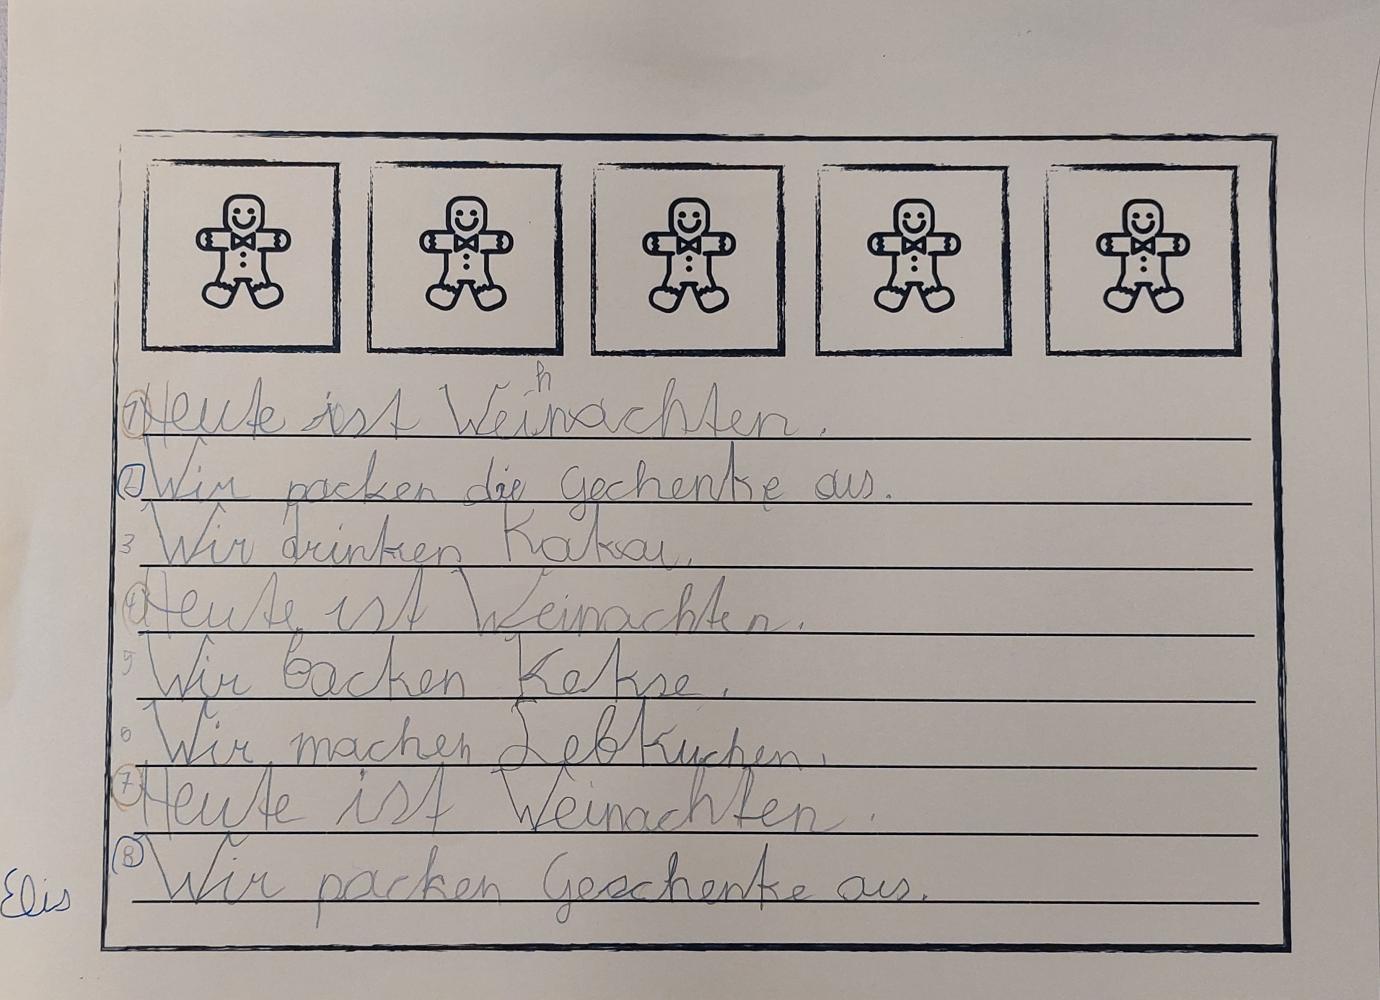 1 Heute ist Weihnachten.
2 Wir packen die Gechenke aus.
3 Wir drinken Kakau.
4 Heute ist Weinachten.
5 Wir backen Kekse.
6 Wir machen Lebkuchen.
7 Heute ist Weinachten.
8 Wir packen Geschenke aus.
Elis